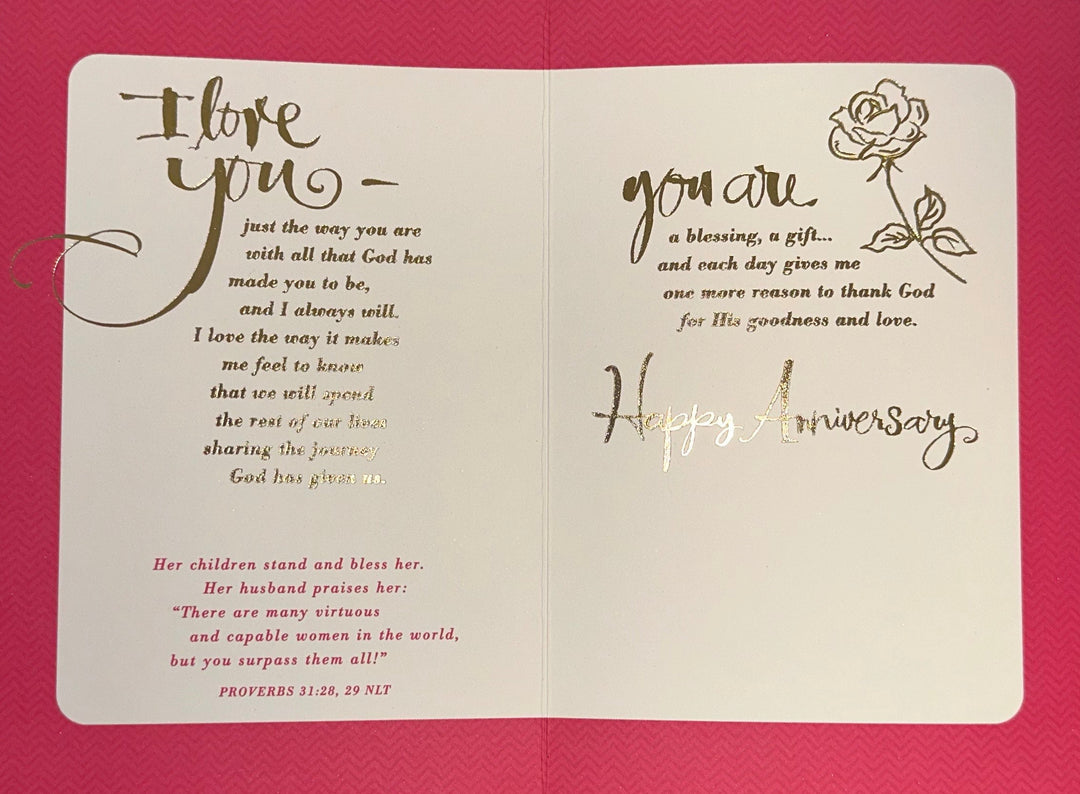 I love
you –
just the way you are
with all that God has
made you to be,
and I always will.
I love the way it makes
me feel to know
that we will spend
the rest of our lives
sharing the journey
God has given us.
Her children stand and bless her.
Her husband praises her:
“There are many virtuous
and capable women in the world,
but you surpass them all!”
PROVERBS 31:28, 29 NLT
you are
a blessing, a gift...
and each day gives me
one more reason to thank God
for His goodness and love.
Happy Anniversary